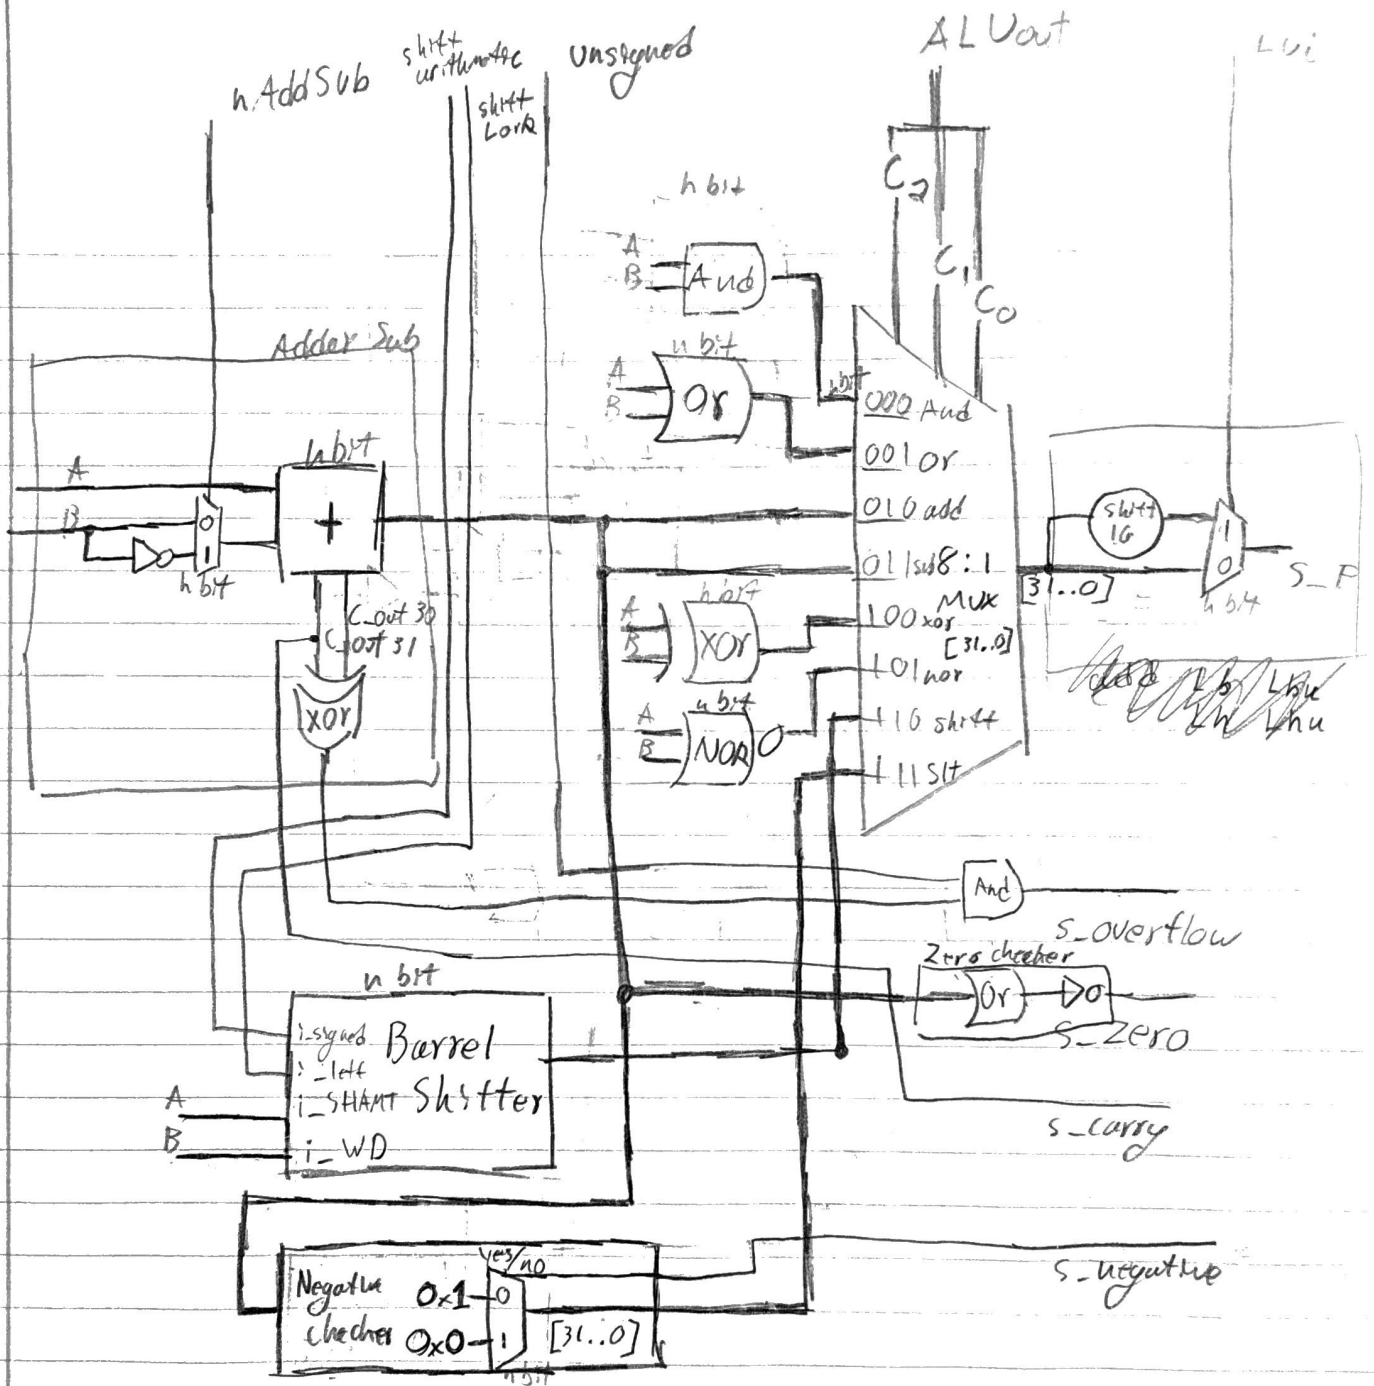 ALUout
Lui
n.AddSub
shift
arithmetic
shift
Lor R
unsigned
n bit
C2
C1
C0
A
B
And
Adder Sub
n bit
A
B
Or
nbit
000 And
001 or
010 add
011 sub
8:1
MUX
100 xor
[31..0]
101 nor
110 shift
111 Slt
n bit
A
B
0
1
n bit
+
C_out 30
C_out 31
xor
n bit
A
B
XOr
n bit
A
B
NOR
shift
16
1
0
n bit
[31..0]
S_F
Lb Lbu
Lh Lhu
And
s_overflow
Zero checker
Or
s_zero
s_carry
n bit
i_signed
i_left
i_SHAMT
i_WD
Barrel
Shifter
A
B
Negative
checker
yes/no
0x1
0
0x0
1
[31..0]
n bit
s_negative